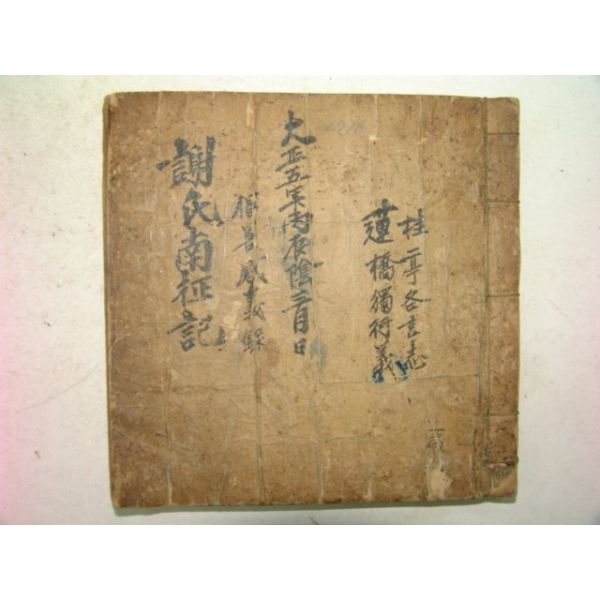 桂亭各言志
蓮橋獨行義
大正五年丙辰陰三月日
倡善感義錄
謝氏南征記